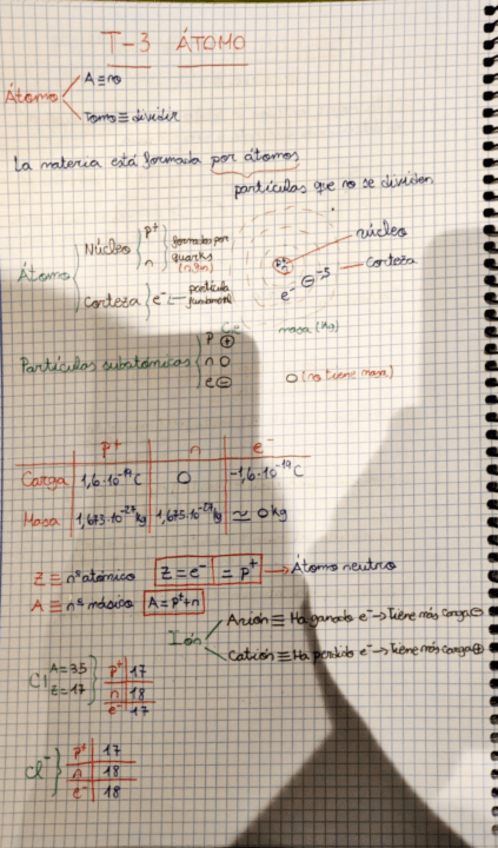 T-3 ÁTOMO
Átomo
A ≡ no
Tomo ≡ dividir
La materia está formada por átomos
partículas que no se dividen
Átomo
Núcleo
p⁺
n
formados por
quarks
Corteza
e⁻
partícula
fundamental
núcleo
corteza
e⁻
Partículas subatómicas
p ⊕
n O
e ⊖
masa (Kg)
O (no tiene masa)
p⁺ n e⁻
Carga 1,6·10⁻¹⁹ C 0 -1,6·10⁻¹⁹ C
Masa 1,673·10⁻²⁷ kg 1,675·10⁻²⁷ kg ≃ 0 kg
Z ≡ nº atómico Z = e⁻ = p⁺ → Átomo neutro
A ≡ nº másico A = p⁺+n
Ión
Anión ≡ Ha ganado e⁻ → Tiene más carga ⊖
Catión ≡ Ha perdido e⁻ → Tiene más carga ⊕
Cl
A = 35
Z = 17
p⁺ 17
n 18
e⁻ 17
Cl⁻
p⁺ 17
n 18
e⁻ 18